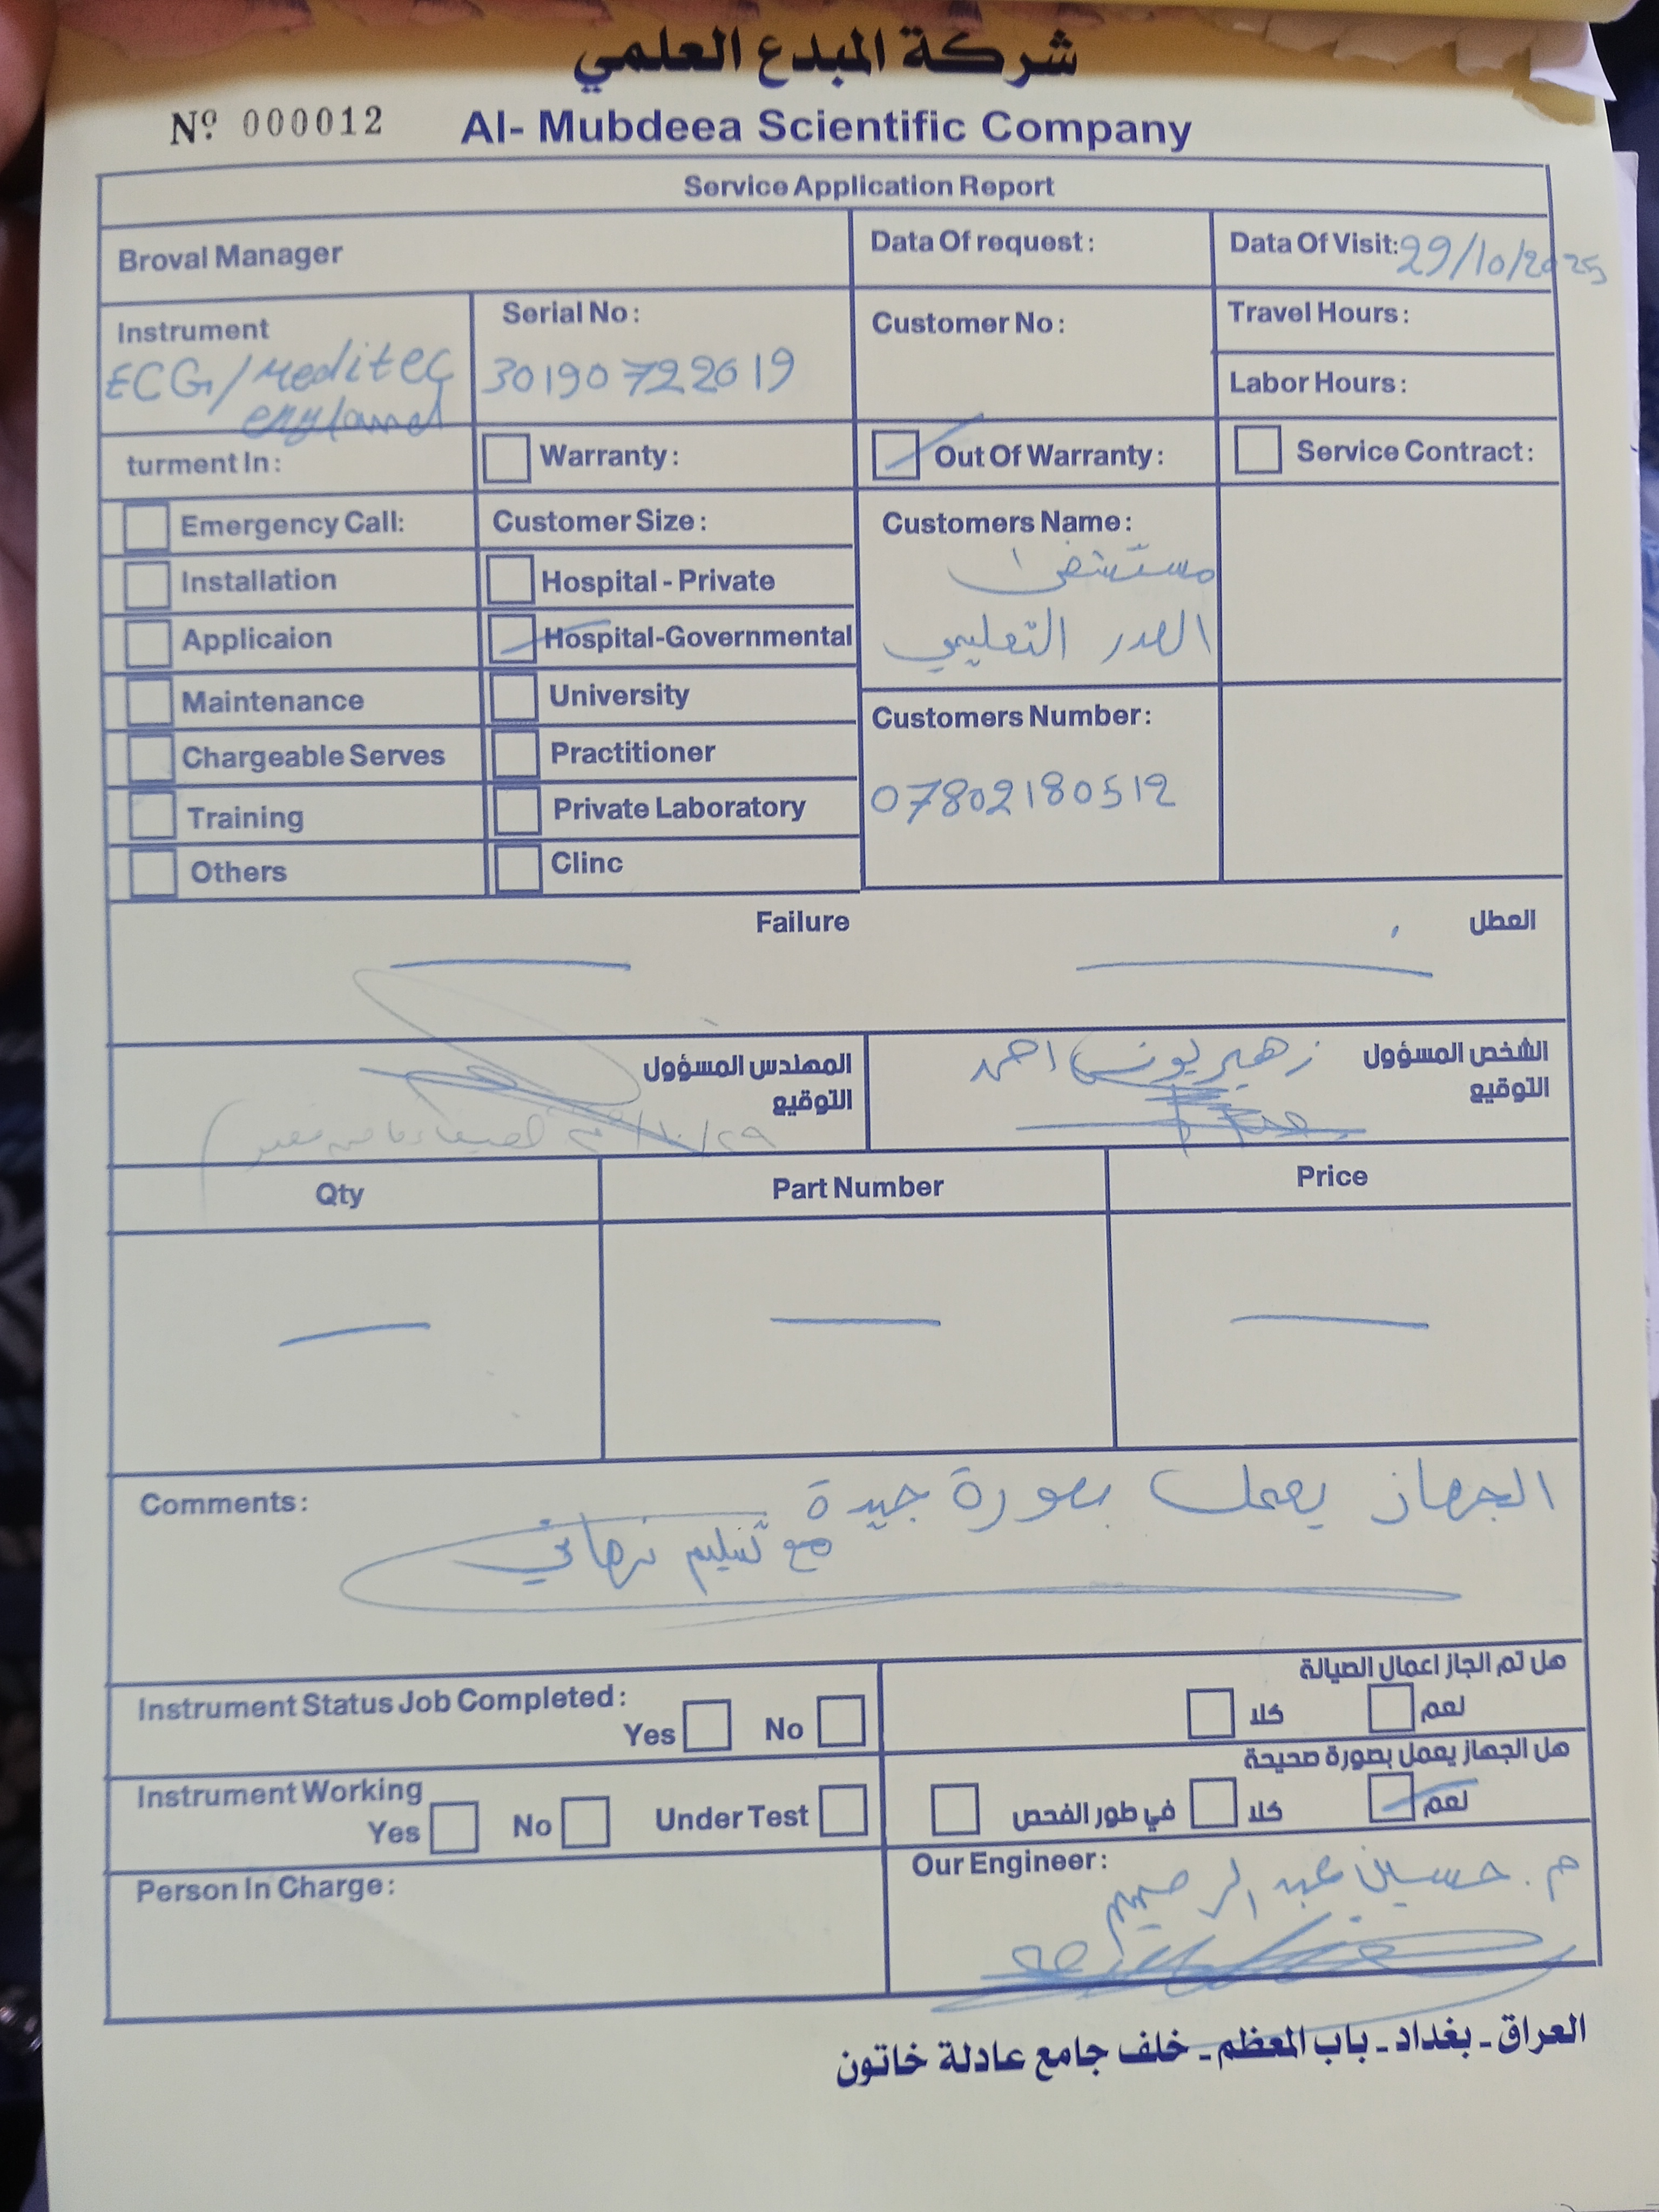 شركة المبدع العلمي
Nº 000012
Al- Mubdeea Scientific Company
Service Application Report
Broval Manager
Data Of request :
Data Of Visit: 29/10/2025
Instrument
ECG/Meditec
england
Serial No :
30190722619
Customer No :
Travel Hours :
Labor Hours :
turment In :
Warranty :
Out Of Warranty :
Service Contract :
Emergency Call:
Customer Size :
Customers Name :
مستشفى
الصدر التعليمي
Installation
Hospital - Private
Applicaion
Hospital-Governmental
Maintenance
University
Customers Number :
07802180512
Chargeable Serves
Practitioner
Training
Private Laboratory
Others
Clinc
Failure
العطل
الشخص المسؤول
زهير يونس احمد
التوقيع
المهندس المسؤول
التوقيع
١٠/٢٩
Qty
Part Number
Price
Comments :
الجهاز يعمل بصورة جيدة
مع تسليم نهائي
Instrument Status Job Completed :
Yes
No
هل تم الجاز اعمال الصيالة
لعم
كلا
Instrument Working
Yes
No
Under Test
هل الجهاز يعمل بصورة صحيحة
لعم
كلا
في طور الفحص
Person In Charge :
Our Engineer :
م. حسين عبد الرحيم
العراق ـ بغداد ـ باب المعظم ـ خلف جامع عادلة خاتون